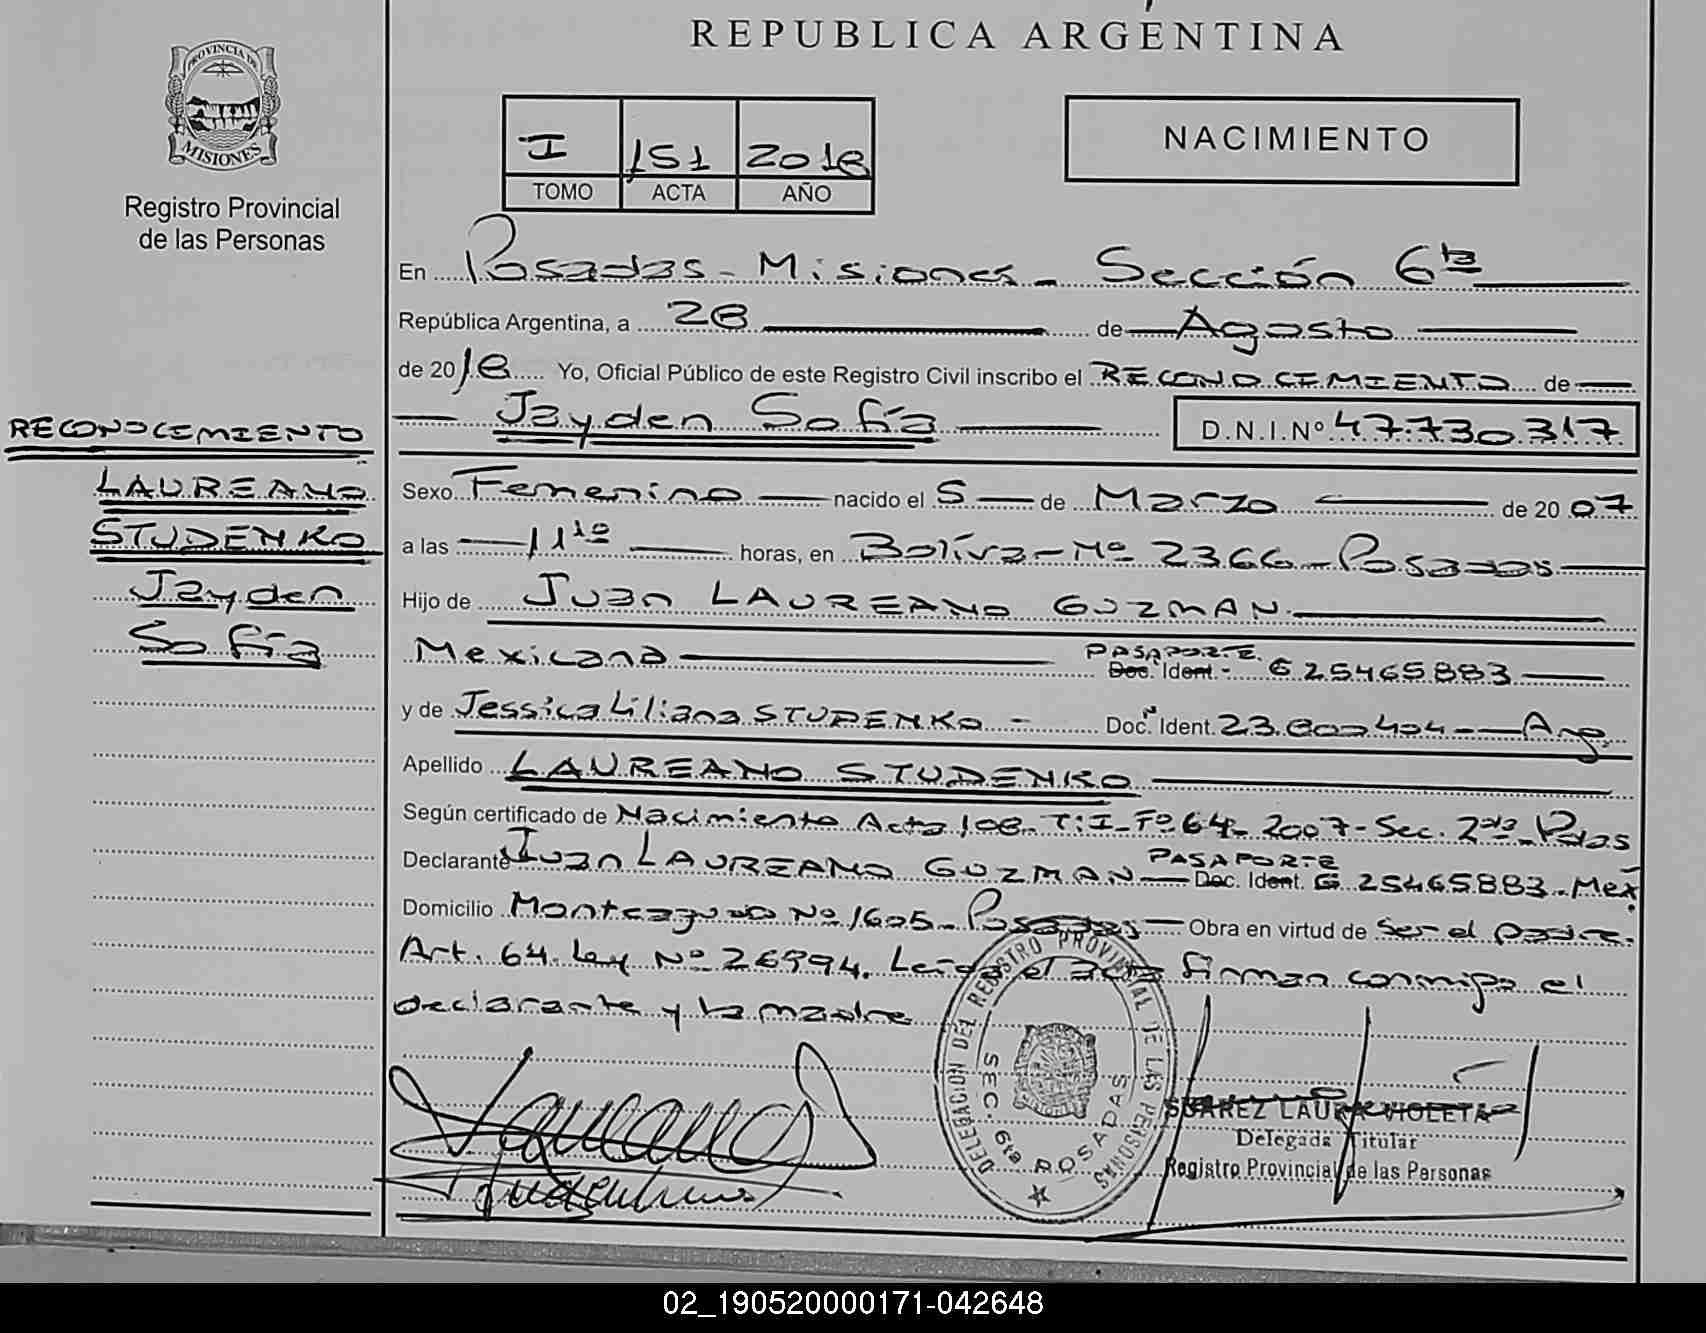 REPUBLICA ARGENTINA
PROVINCIA DE
MISIONES
Registro Provincial
de las Personas
I 151 2018
TOMO ACTA AÑO
NACIMIENTO
En Posadas - Misiones - Sección 6ta
República Argentina, a 28 de Agosto
de 2018 Yo, Oficial Público de este Registro Civil inscribo el RECONOCIMIENTO de
Jayden Sofía D.N.I.Nº 47.730.317
RECONOCIMIENTO
LAUREANO
STUDENKO
Jayden
Sofía
Sexo Femenino nacido el 5 de Marzo de 2007
a las 11 10 horas, en Bolívar Nº 2366 - Posadas
Hijo de Juan LAUREANO GUZMAN
Mexicana PASAPORTE Doc. Ident. - G 25465883
y de Jessica Liliana STUDENKO - Doc. Ident. 23.800.404 - Arg.
Apellido LAUREANO STUDENKO
Según certificado de Nacimiento Acta 108 - T:I - Fº 64 - 2007 - Sec. 2da - Pdas
Declarante Juan LAUREANO GUZMAN PASAPORTE Doc. Ident. G 25465883 - Mex.
Domicilio Monteagudo Nº 1605 - Posadas Obra en virtud de ser el padre.
Art. 64 Ley Nº 26994. Leída el acta firman conmigo el
declarante y la madre
DELEGACION DEL REGISTRO PROVINCIAL DE LAS PERSONAS
SEC. 6ta POSADAS
SUAREZ LAURA VIOLETA
Delegada Titular
Registro Provincial de las Personas
02_190520000171-042648